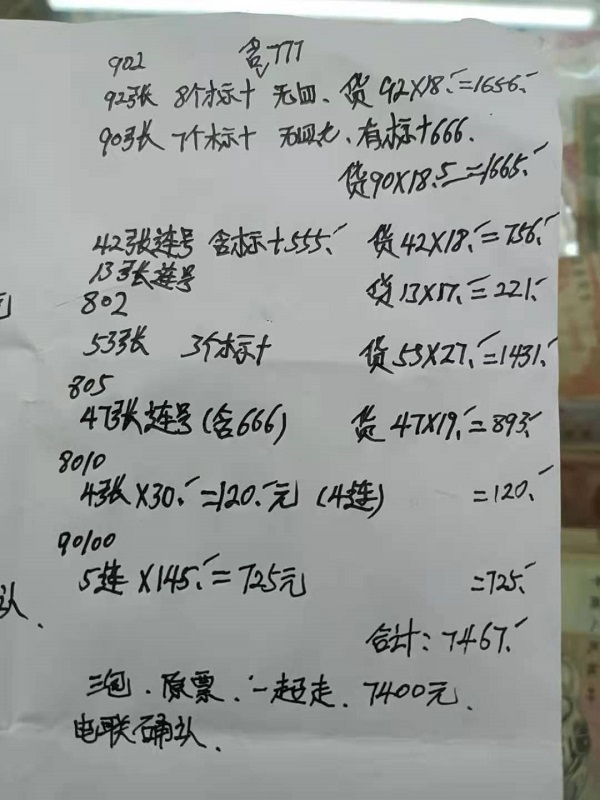 902 含777
92张 8个标十 无四、货92×18.=1656.
90张 7个标十 无四七、有标十666.
货90×18.5=1665.
42张连号 含标十555. 货42×18.=756.
13张连号 货13×17.=221.
802
53张 3个标十 货53×27.=1431.
805
47张连号(含666) 货47×19.=893.
8010
4张×30.=120.元(4连) =120.
90100
5连×145.=725元 =725.
合计:7467.
三包.原票.一起走.7400元.
电联确认.